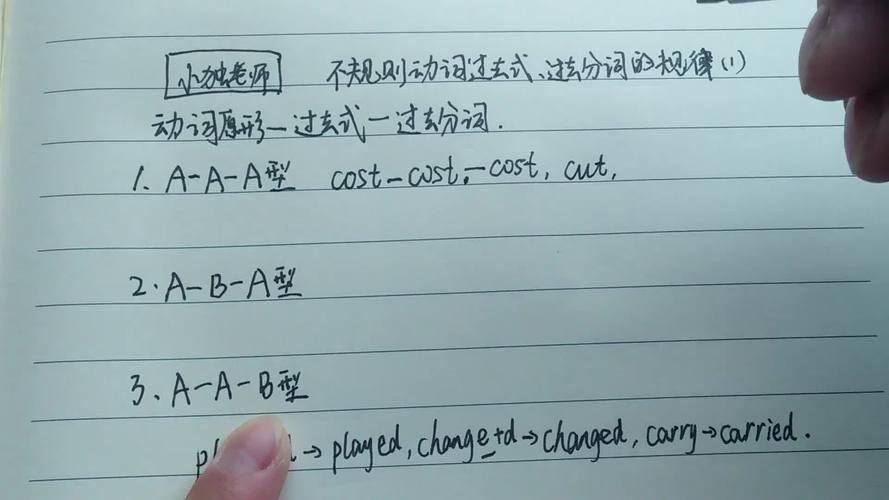 小独老师 不规则动词过去式、过去分词的规律(1)
动词原形—过去式—过去分词.
1. A-A-A型 cost-cost-cost, cut,
2. A-B-A型
3. A-A-B型
→ played, change+d→changed, carry→carried.